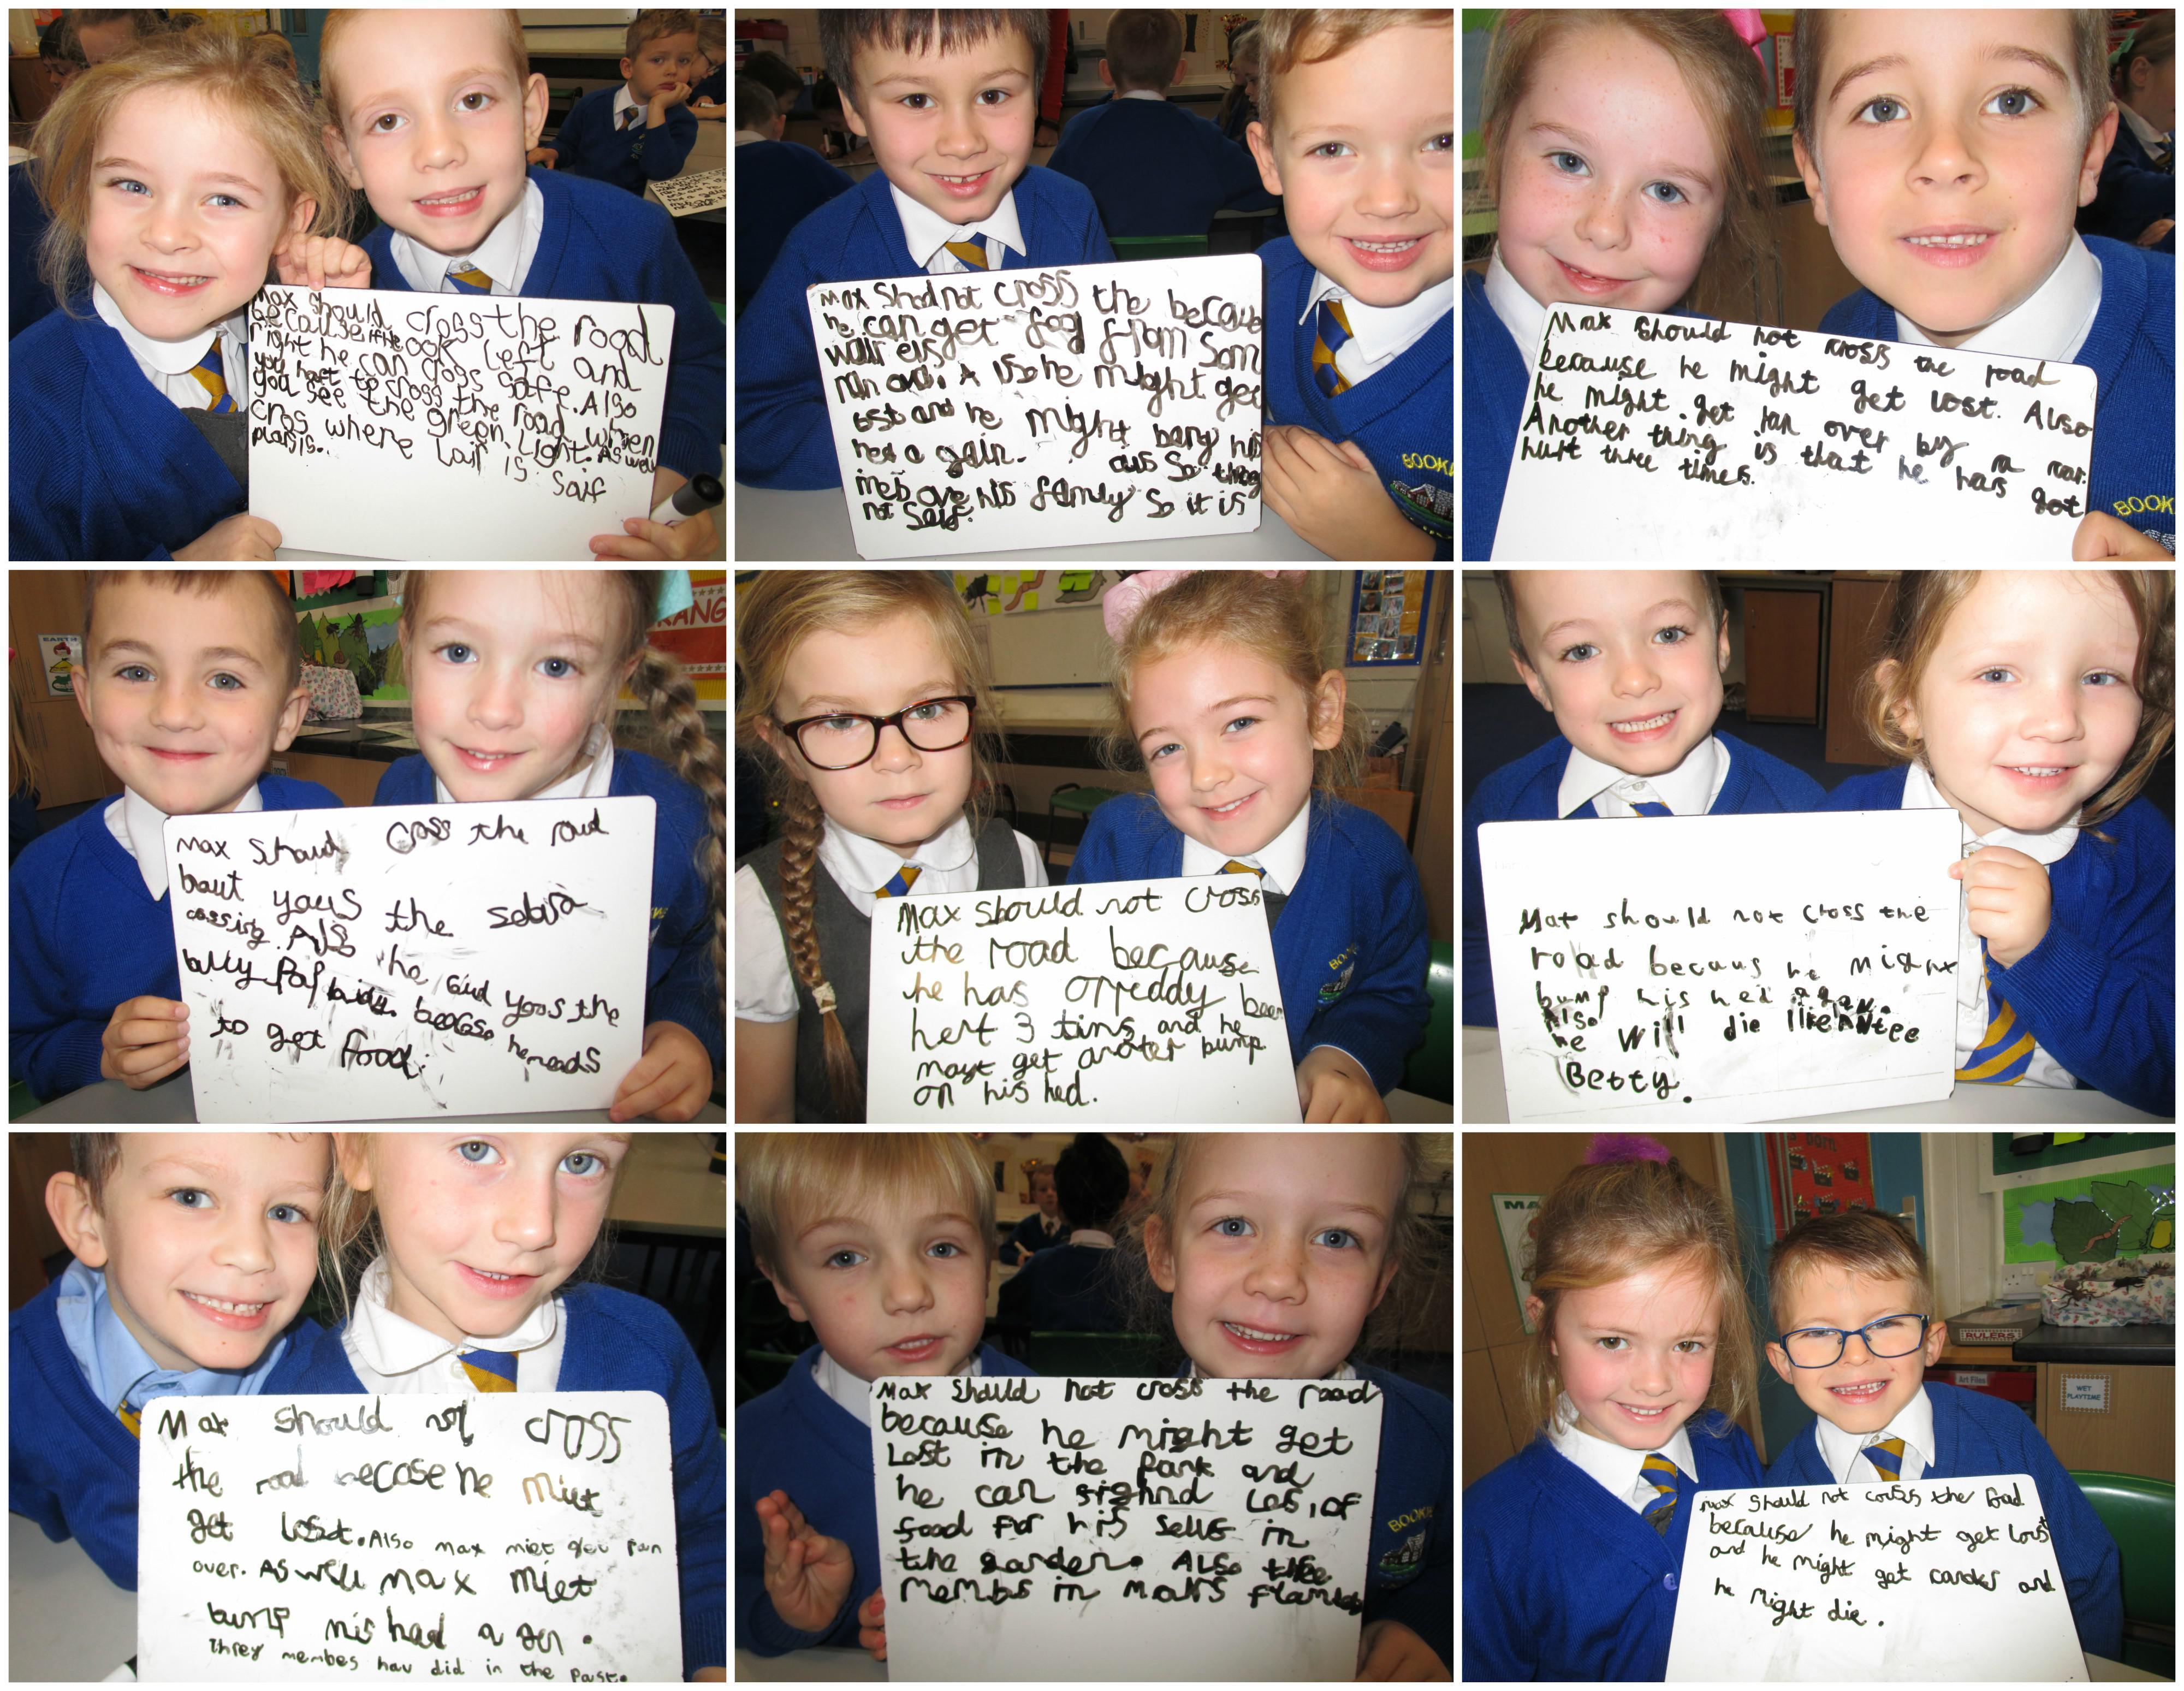 Max should cross the road
because if he look left and
right he can cross safe. Also
you haet to cross the road when
you see the green light. As well
cros where
is. Saif
plais is.
Max Shod not cross the because
he can get from Som
A he might get
ost and he might bang his
hed a gain.
his family So it is
not Seif.
Max should not cross the road
because he might get lost. Also
he might get ran over by a car.
Another thing is that he has got
hurt three times.
BOOK
BOOK
EARTH
KANG
Max Shoud Coss the roud
the sebra
cossing. Als he
the
becose he neads
to get food.
Max should not Cross
the road because
he has orreddy been
hert 3 tims and he
mayt get anater bump
on his hed.
BOO
Max should not cross the
road becaus he might
bump his hed agen.
Also
he will die like Antee
Betty.
Max should not cross
the road becose he miet
get lost. Also max miet get ran
over. As well max miet
bump his had a gen.
Threy membes hav did in the past.
Max should not cross the road
because he might get
Lost in the park and
he can fighnd Los, of
food for his selve in
the garden. Also thee
membs in
BOOK
MA
RULERS
Art Files
WET
PLAYTIME
Max should not coross the road
because he might get lost
and he might get and
he might die.